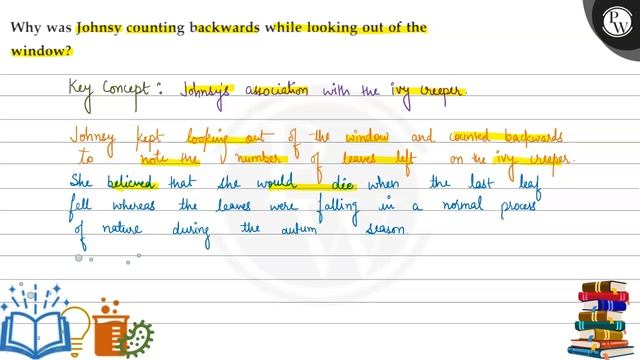 Why was Johnsy counting backwards while looking out of the
window?
Key Concept : Johnsy's association with the ivy creeper.
Johnsy kept looking out of the window and counted backwards
to note the number of leaves left on the ivy creeper.
She believed that she would die when the last leaf
fell whereas the leaves were falling in a normal process
of nature during the autum season.
PW